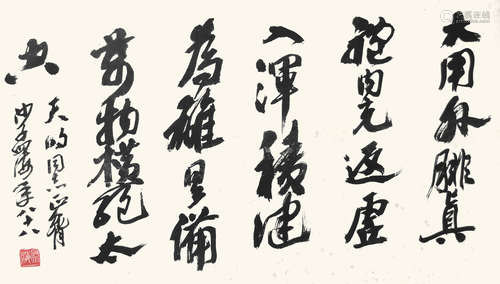 大用外腓真
體内充返虛
入渾積健
為雄具備
萬物橫絕太
空
天 同志正
沙孟海年八十八